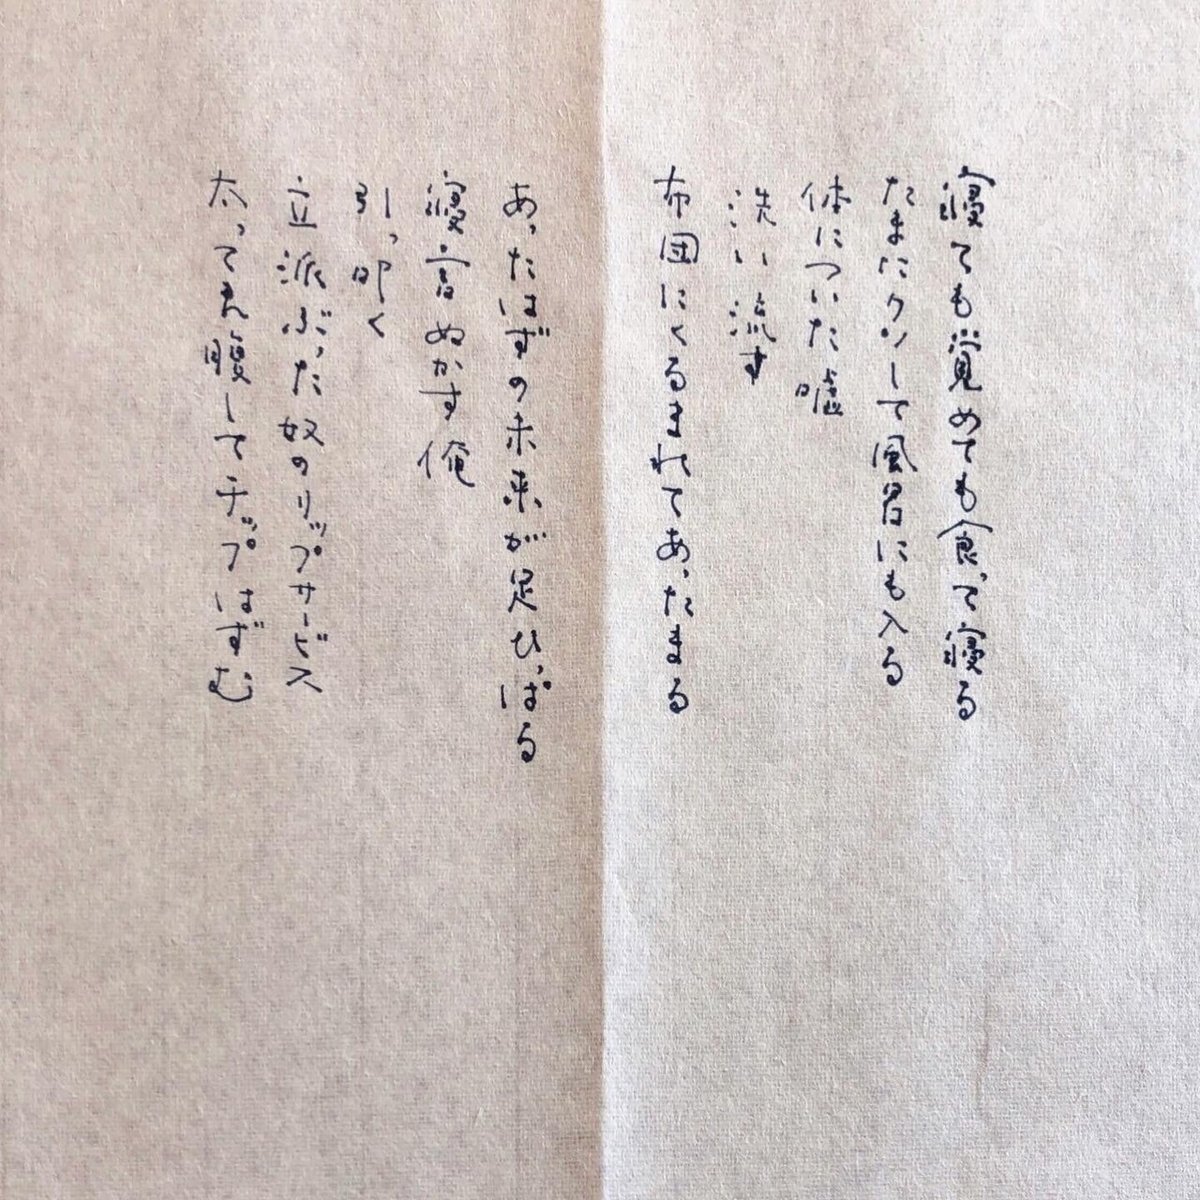 寝ても覚めても食って寝る
たまにクソして風呂にも入る
体についた嘘
洗い流す
布団にくるまれてあったまる
あったはずの未来が足ひっぱる
寝言ぬかす俺
引っ叩く
立派ぶった奴のリップサービス
太ってえ腹してチップはずむ